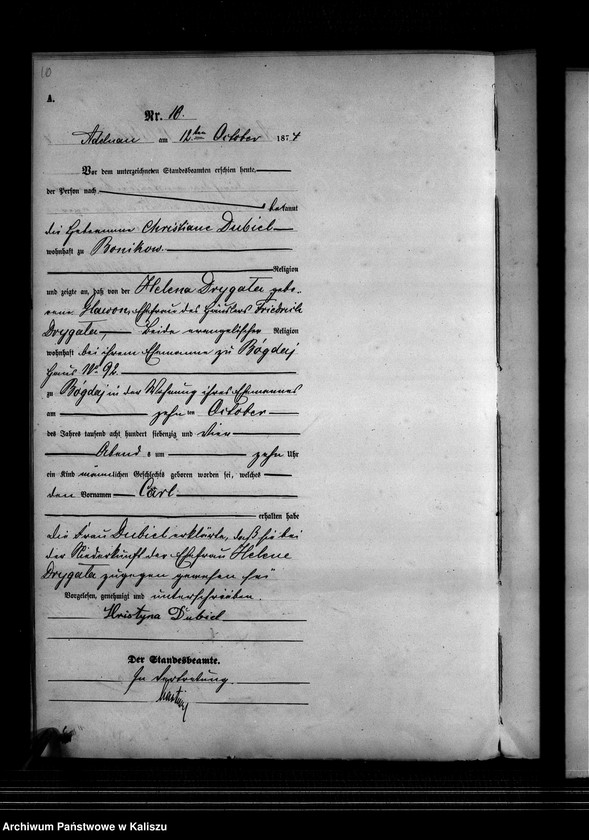 10
A.
Nr. 10.
Adelnau am 12ten October 1874
Vor dem unterzeichneten Standesbeamten erschien heute,
der Person nach
bekannt
die Hebeamme Christiane Dubiel
wohnhaft zu Bonikow.
Religion
und zeigte an, daß von der Helena Drygala gebo-
rene Ehefrau des Häuslers Friedrich
Drygala, beide evangelischer Religion
wohnhaft bei ihrem Ehemanne zu Bógdaj
Haus No 92.
zu Bógdaj in der Wohnung ihres Ehemannes
am zehn ten October
des Jahres tausend acht hundert siebenzig und vier
Abend s um zehn Uhr
ein Kind männlichen Geschlechts geboren worden sei, welches
den Vornamen Carl
erhalten habe
die Frau Dubiel erklärte, daß sie bei
der Niederkunft der Ehefrau Helene
Drygala zugegen gewesen sei
Vorgelesen, genehmigt und unterschrieben.
Kristyna Dubiel
Der Standesbeamte.
In Vertretung
Archiwum Państwowe w Kaliszu